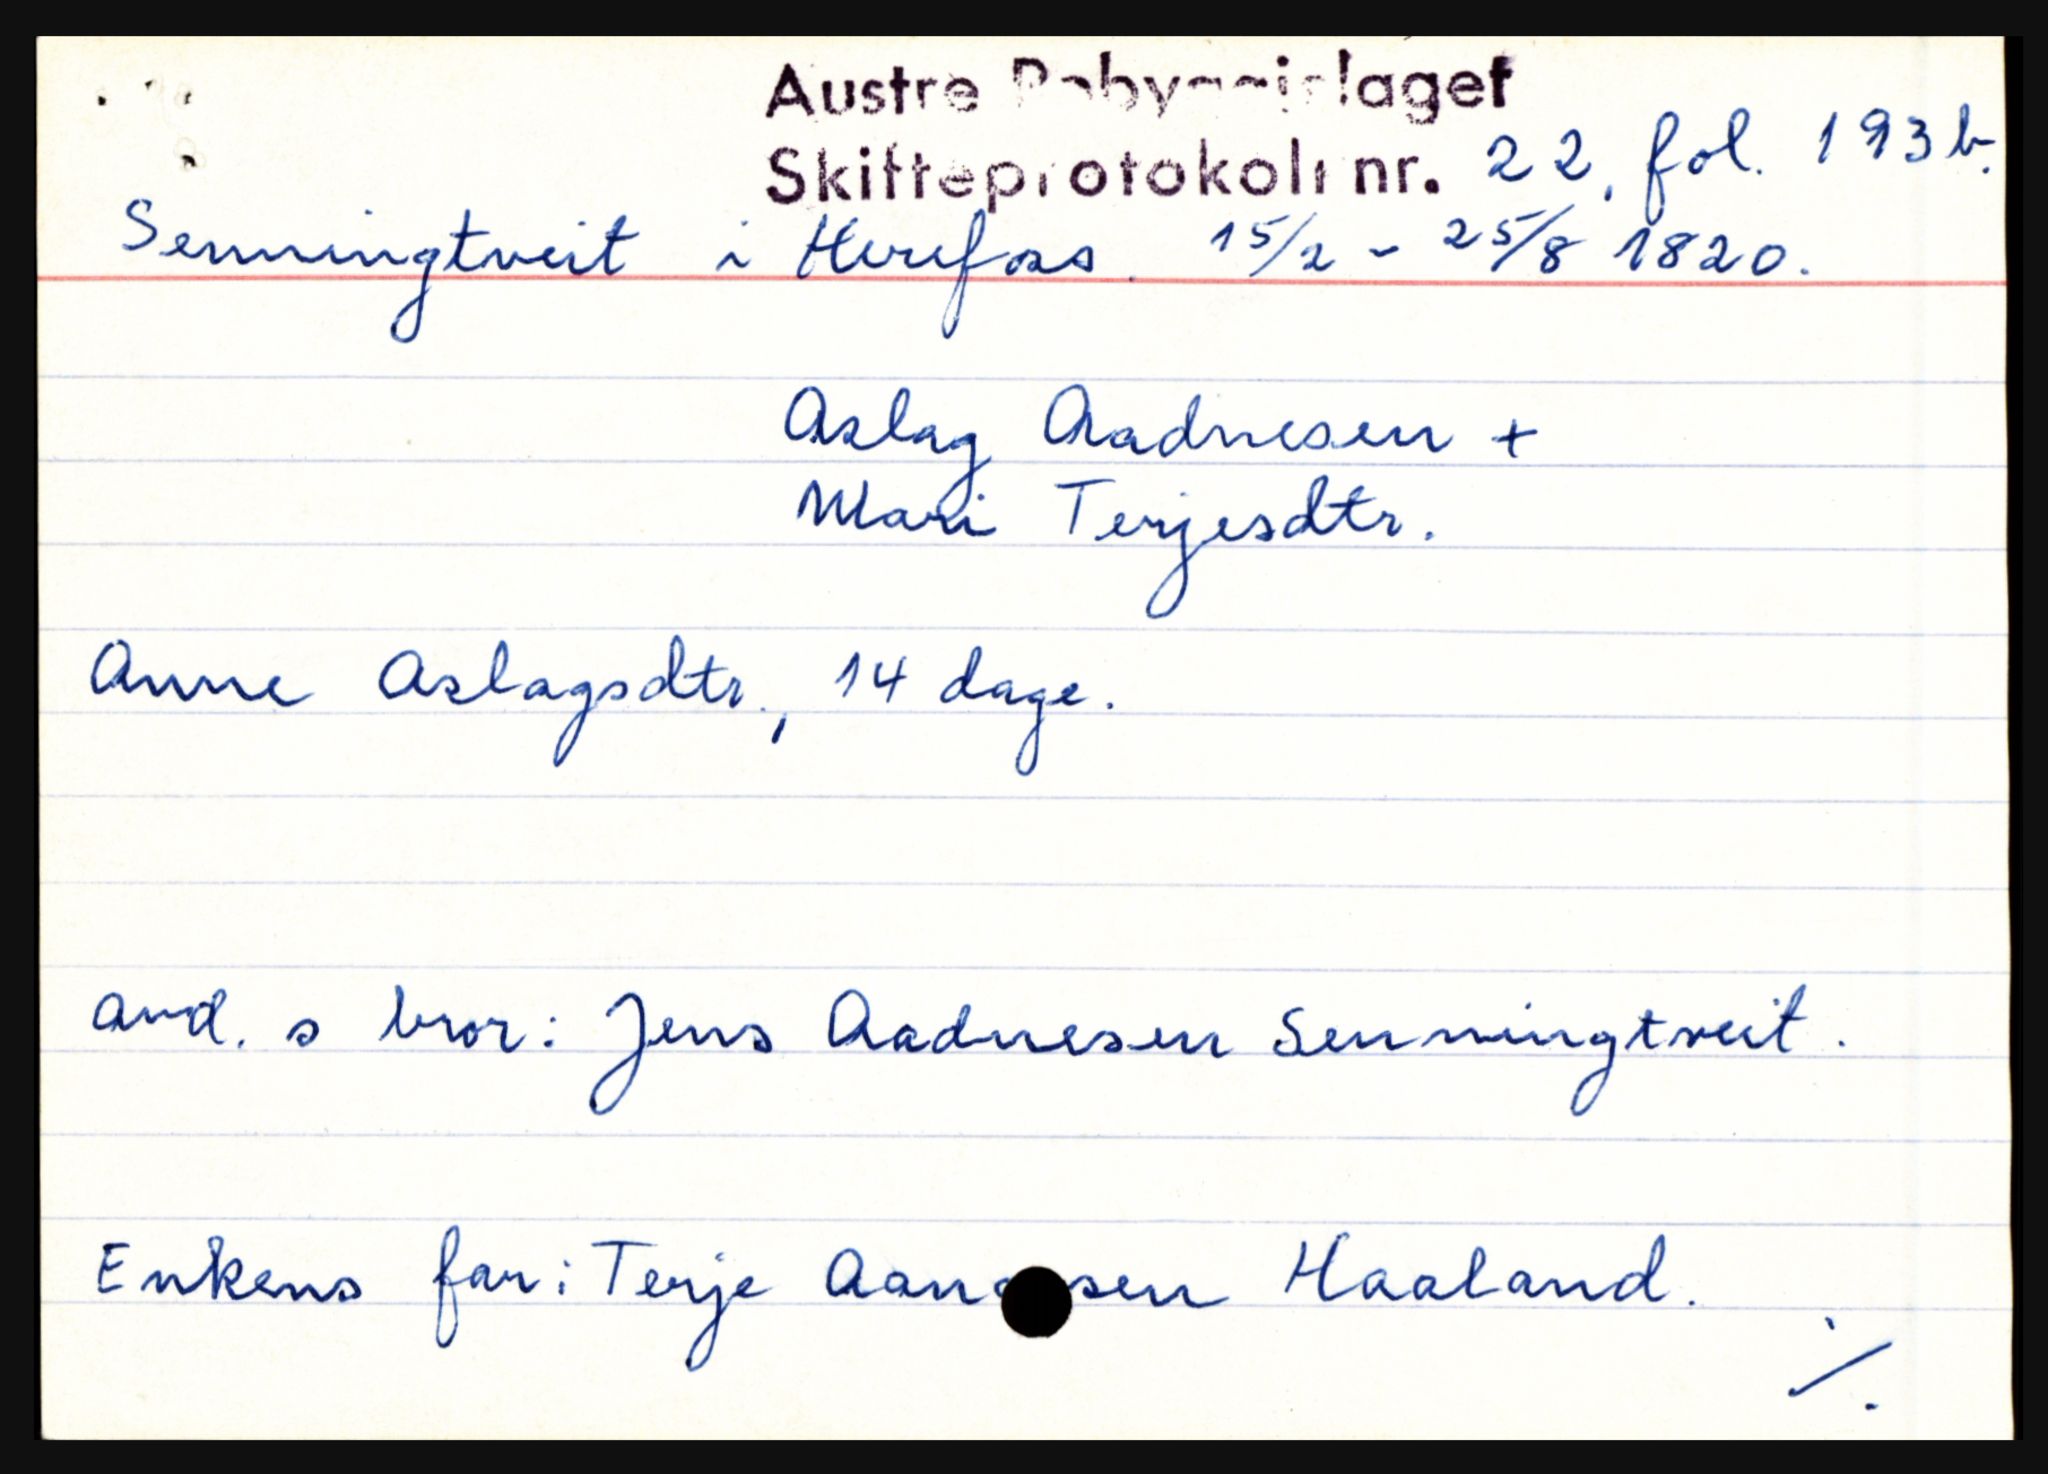 Austre Robyggjelaget
Skifteprotokoll nr. 22, fol. 193 b.
Senningtveit i Herefoss. 15/2 - 25/8 1820.
Aslag Aadnesen +
Mari Terjesdtr.
Anne Aslagsdtr., 14 dage.
avd. s bror: Jens Aadnesen Senningtveit.
Enkens far: Terje Haaland.
./.